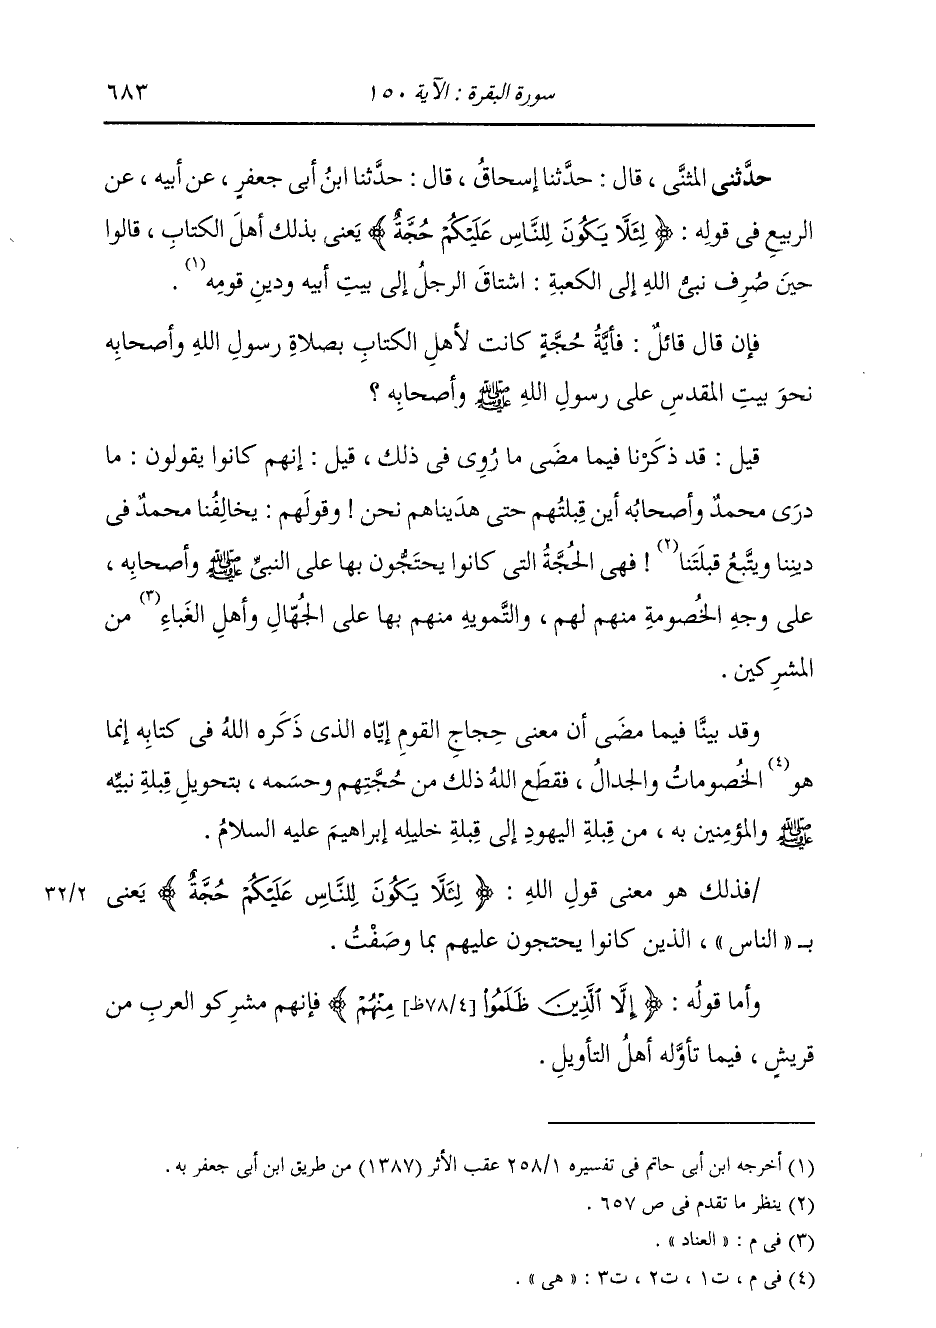 سورة البقرة : الآية ١٥٠ ٦٨٣
حدَّثنى المثنَّى ، قال : حدَّثنا إسحاقُ ، قال : حدَّثنا ابنُ أبى جعفرٍ ، عن أبيه ، عن
الربيعِ فى قولِه : ﴿ لِئَلَّا يَكُونَ لِلنَّاسِ عَلَيْكُمْ حُجَّةٌ ﴾ يَعنى بذلك أهلَ الكتابِ ، قالوا
حينَ صُرِف نبىُّ اللهِ إلى الكعبةِ : اشتاقَ الرجلُ إلى بيتِ أبيه ودينِ قومِه(١) .
فإن قال قائلٌ : فأيَّةُ حُجَّةٍ كانت لأهلِ الكتابِ بصلاةِ رسولِ اللهِ وأصحابِه
نحوَ بيتِ المقدسِ على رسولِ اللهِ ﷺ وأصحابِه ؟
قيل : قد ذكَرْنا فيما مضَى ما رُوِى فى ذلك ، قيل : إنهم كانوا يقولون : ما
درَى محمدٌ وأصحابُه أين قِبلتُهم حتى هدَيناهم نحن ! وقولَهم : يخالِفُنا محمدٌ فى
دينِنا ويتَّبعُ قبلَتَنا(٢) ! فهى الحُجَّةُ التى كانوا يحتَجُّون بها على النبىِّ ﷺ وأصحابِه ،
على وجهِ الخُصومةِ منهم لهم ، والتَّمويهِ منهم بها على الجُهّالِ وأهلِ الغَباءِ(٣) من
المشرِكين .
وقد بينَّا فيما مضَى أن معنى حِجاجِ القومِ إيّاه الذى ذَكَره اللهُ فى كتابِه إنما
هو(٤) الخُصوماتُ والجدالُ ، فقطَع اللهُ ذلك من حُجَّتِهم وحسَمه ، بتحويلِ قِبلةِ نبيِّه
ﷺ والمؤمِنين به ، من قِبلةِ اليهودِ إلى قِبلةِ خليلِه إبراهيمَ عليه السلامُ .
/فذلك هو معنى قولِ اللهِ : ﴿ لِئَلَّا يَكُونَ لِلنَّاسِ عَلَيْكُمْ حُجَّةٌ ﴾ يَعنى ٣٢/٢
بـ « الناس » ، الذين كانوا يحتجون عليهم بما وصَفْتُ .
وأما قولُه : ﴿ إِلَّا ٱلَّذِينَ ظَلَمُوا۟ [٧٨/٤ظ] مِنْهُمْ ﴾ فإنهم مشرِكو العربِ من
قريشٍ ، فيما تأوَّله أهلُ التأويلِ .
(١) أخرجه ابن أبى حاتم فى تفسيره ٢٥٨/١ عقب الأثر (١٣٨٧) من طريق ابن أبى جعفر به .
(٢) ينظر ما تقدم فى ص ٦٥٧ .
(٣) فى م : « العناد » .
(٤) فى م ، ت١ ، ت٢ ، ت٣ : « هى » .